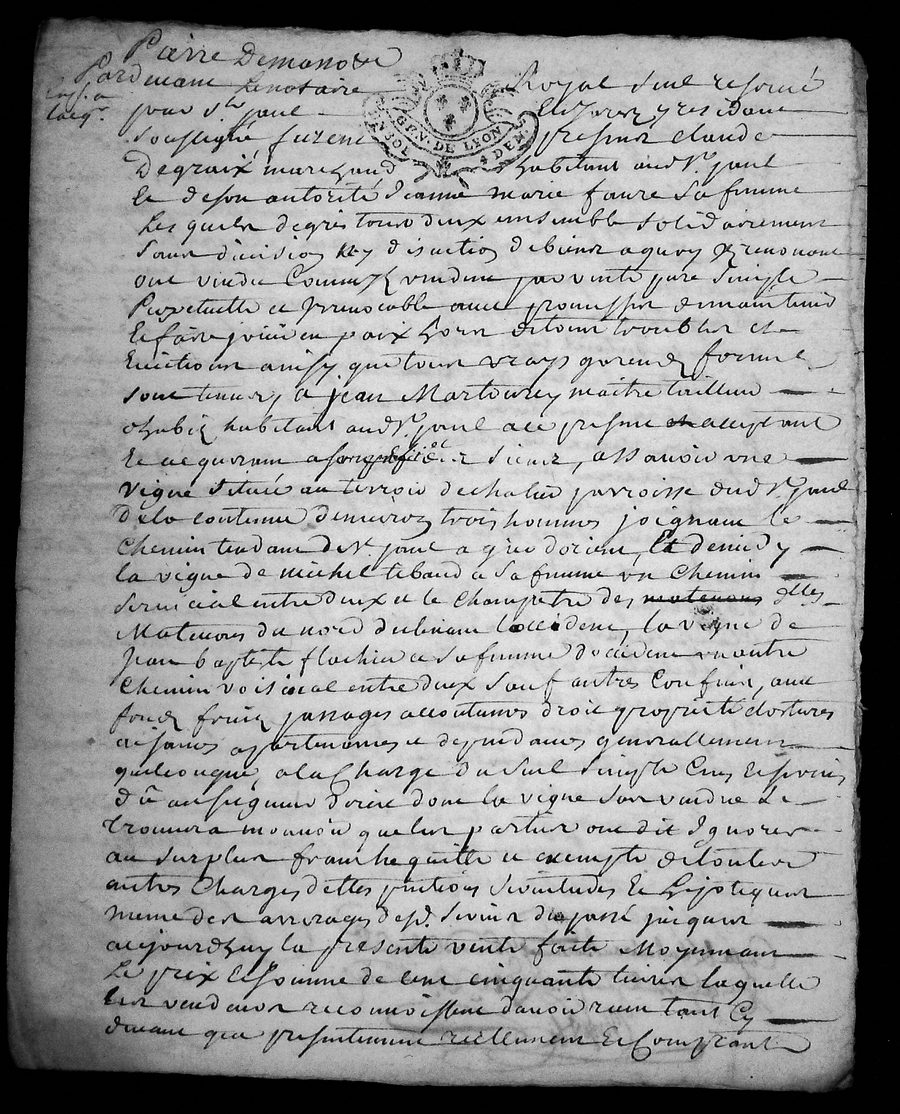 Pierre Demonor
Pardevant Le notaire Royal Seul reservé
pour St. paul En Jarez y residant
Soussigné, furent presens claude
GEN. DE LYON
Degraix marchand habitant aud. St. paul
Et de son autorité Jeanne marie faure Sa femme
Lesquels de gré tous deux ensemble Solidairement
Sans division ny discution de biens a quoy Ils renoncent
ont vendu Comme Ils vendent par vente pure Simple
Perpetuelle et Irrevocable avec promesse de maintenir
Et faire jouir en paix hors de tous troubles et
Evictions ainsy que tous vrays garends former
Sont tenus, a jean Marcourey maitre tailleur
d'habits habitant aud. St. paul ice present acceptant
Et acquerant a son profit et des Siens, assavoir une
vigne Située au terroir de chalus parroisse dud. St. paul
de la contenue d'environ trois hommes joignant le
Chemin tendant de St. paul a d'orient, Et de midy
la vigne de michel tebaud a Sa femme un Chemin
Servicial entre deux et le Champêtre des matenons dlles.
Matenons du nord declinant loccident, la vigne de
Jean baptiste flachier et Sa femme d'occident un autre
Chemin voisinal entre deux Sauf autres Confins, avec
fonds fruits passages accoutumés droit proprieté clostures
aisances apartenances et dependances generallement
quelconque, a la Charge du Seul Simple Cens Et Servis
Dû au seigneur Direct dont la vigne Sus vendue Se
trouvera mouvoir que les parties ont dit Ignorer
au Surplus franche quitte et exempte de toutes
autres Charges dettes pentions Servitudes Et hipoteques
meme des arrerages desd. Servis du passé jusques
aujourdhuy la presente vente faite Moyennant
Le prix Et Somme de cent cinquante livres laquelle
les vendeurs reconnoissent davoir receu tant Cy
devant que presentement reellement Et Comptant